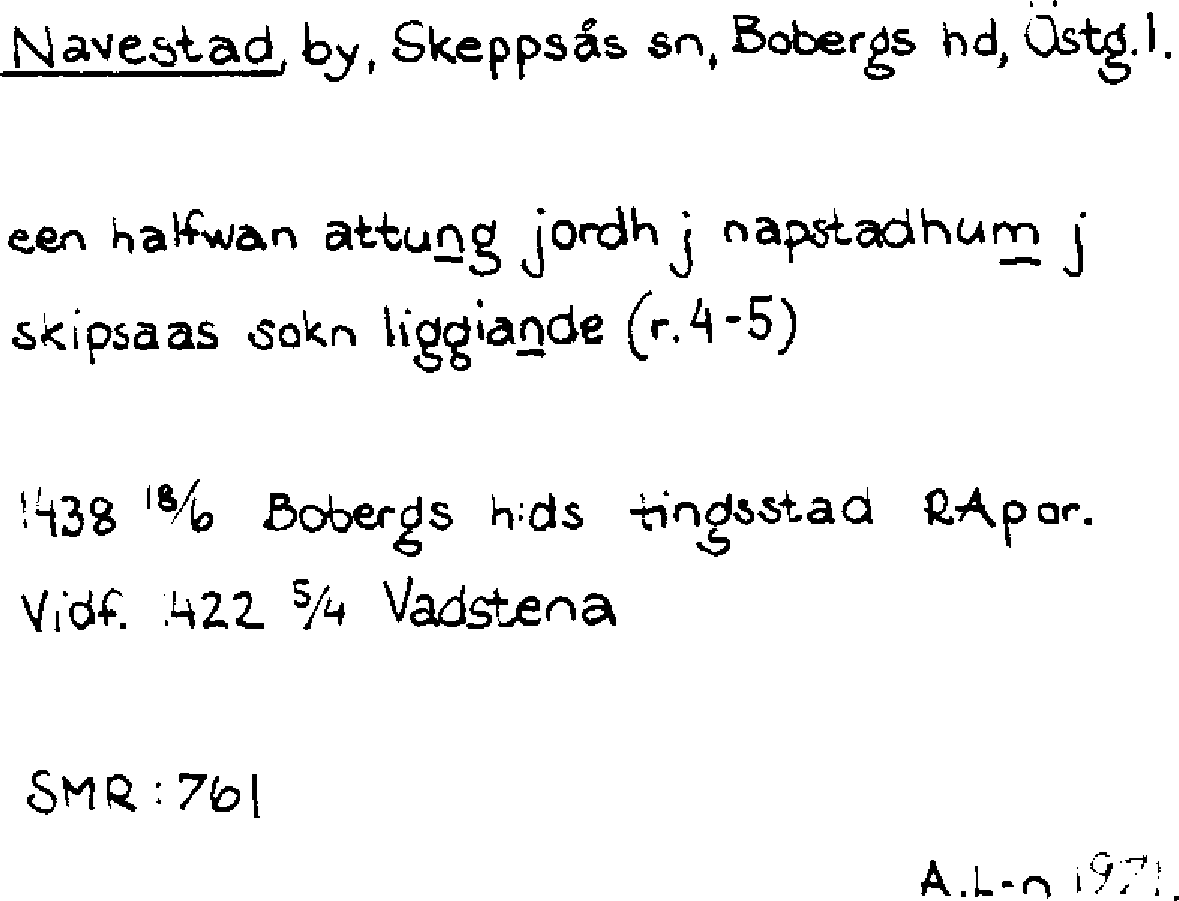 Navestad, by, Skeppsås sn, Bobergs hd, Östg.l.
een halfwan attung jordh j napstadhum j
skipsaas sokn liggiande (r. 4-5)
1438 18/6 Bobergs h:ds tingsstad RApar.
Vidf. 1422 5/4 Vadstena
SMR: 761
A.L-n 1971.